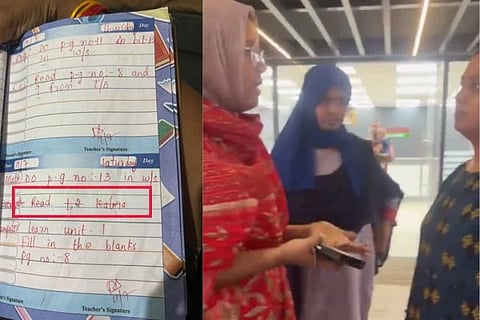 Day
Do pg no:-11 in
in w/s
Read pg no:-8 and
9 from T/B
Teacher's Signature
Saturday Day
Do pg no:-13 in w/s
Read 1,2 Kalma
learn unit-1
Fill in the blanks
Pg no:-8.
Teacher's Signature